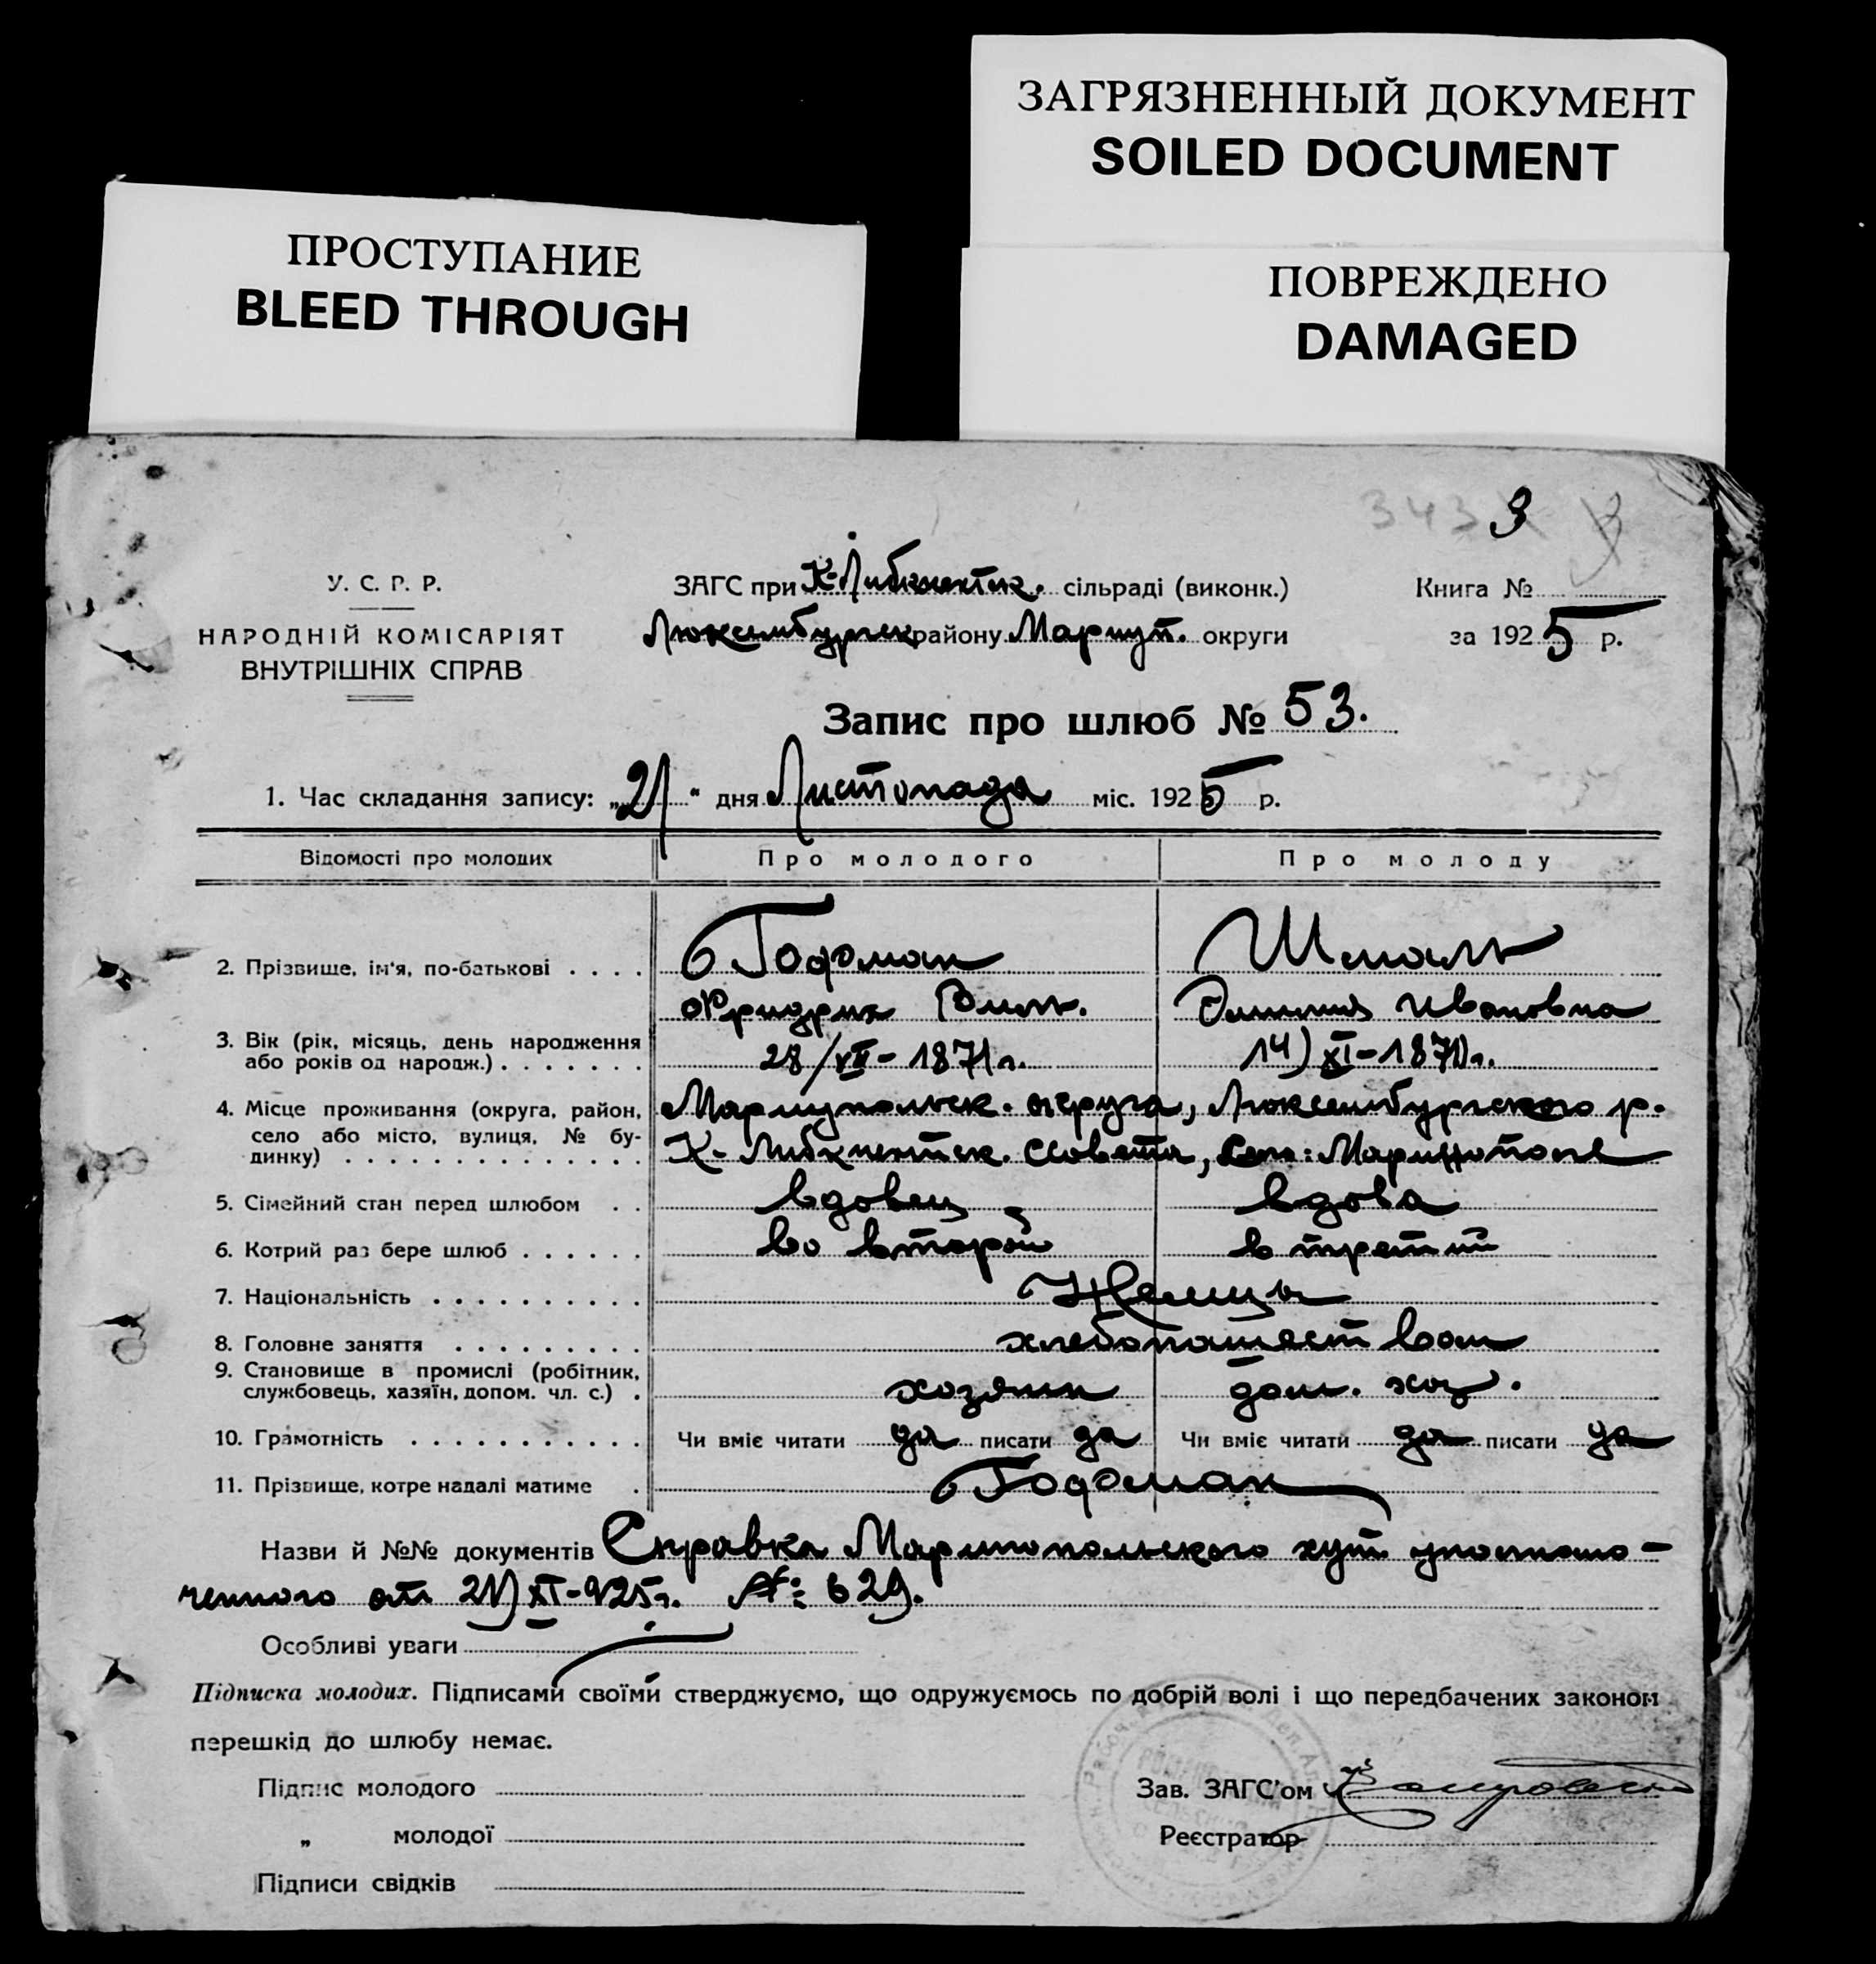 ЗАГРЯЗНЕННЫЙ ДОКУМЕНТ
SOILED DOCUMENT
ПРОСТУПАНИЕ
BLEED THROUGH
ПОВРЕЖДЕНО
DAMAGED
343 9
У. С. Р. Р.
НАРОДНІЙ КОМІСАРІЯТ
ВНУТРІШНІХ СПРАВ
ЗАГС при К-Либкнехтск. сільраді (виконк.)
Люксембургск району Мариуп. округи
Книга №
за 1925 р.
Запис про шлюб № 53.
1. Час складання запису: „21“ дня Листопада міс. 1925 р.
Відомості про молодих Про молодого Про молоду
2. Прізвище, ім'я, по-батькові . . . . Шмаль
Фридрих Вильг. Ивановна
3. Вік (рік, місяць, день народження 28/XII-1871 г. 14) XI-1871 г.
або років од народж.) . . . . . . .
4. Місце проживання (округа, район, Мариупольск. округа, Люксембургского р.
село або місто, вулиця, № бу-
динку) . . . . . . . . . . . . . . К-Либкнехтск. Совета,
5. Сімейний стан перед шлюбом . . вдовец вдова
6. Котрий раз бере шлюб . . . . . . во второй в третий
7. Національність . . . . . . . . . . Немцы
8. Головне заняття . . . . . . . . . хлебопашеством
9. Становище в промислі (робітник,
службовець, хазяїн, допом. чл. с.) . хозяин дом. хоз.
10. Грамотність . . . . . . . . . . . Чи вміє читати да писати да Чи вміє читати да писати да
11. Прізвище, котре надалі матиме .
Назви й №№ документів Справка хут. уполномо-
ченного от 21) XI-925 г. №: 629.
Особливі уваги
Підписка молодих. Підписами своїми стверджуємо, що одружуємось по добрій волі і що передбачених законом
перешкід до шлюбу немає.
Підпис молодого
Зав. ЗАГС'ом
„ молодої
Реєстратор
Підписи свідків